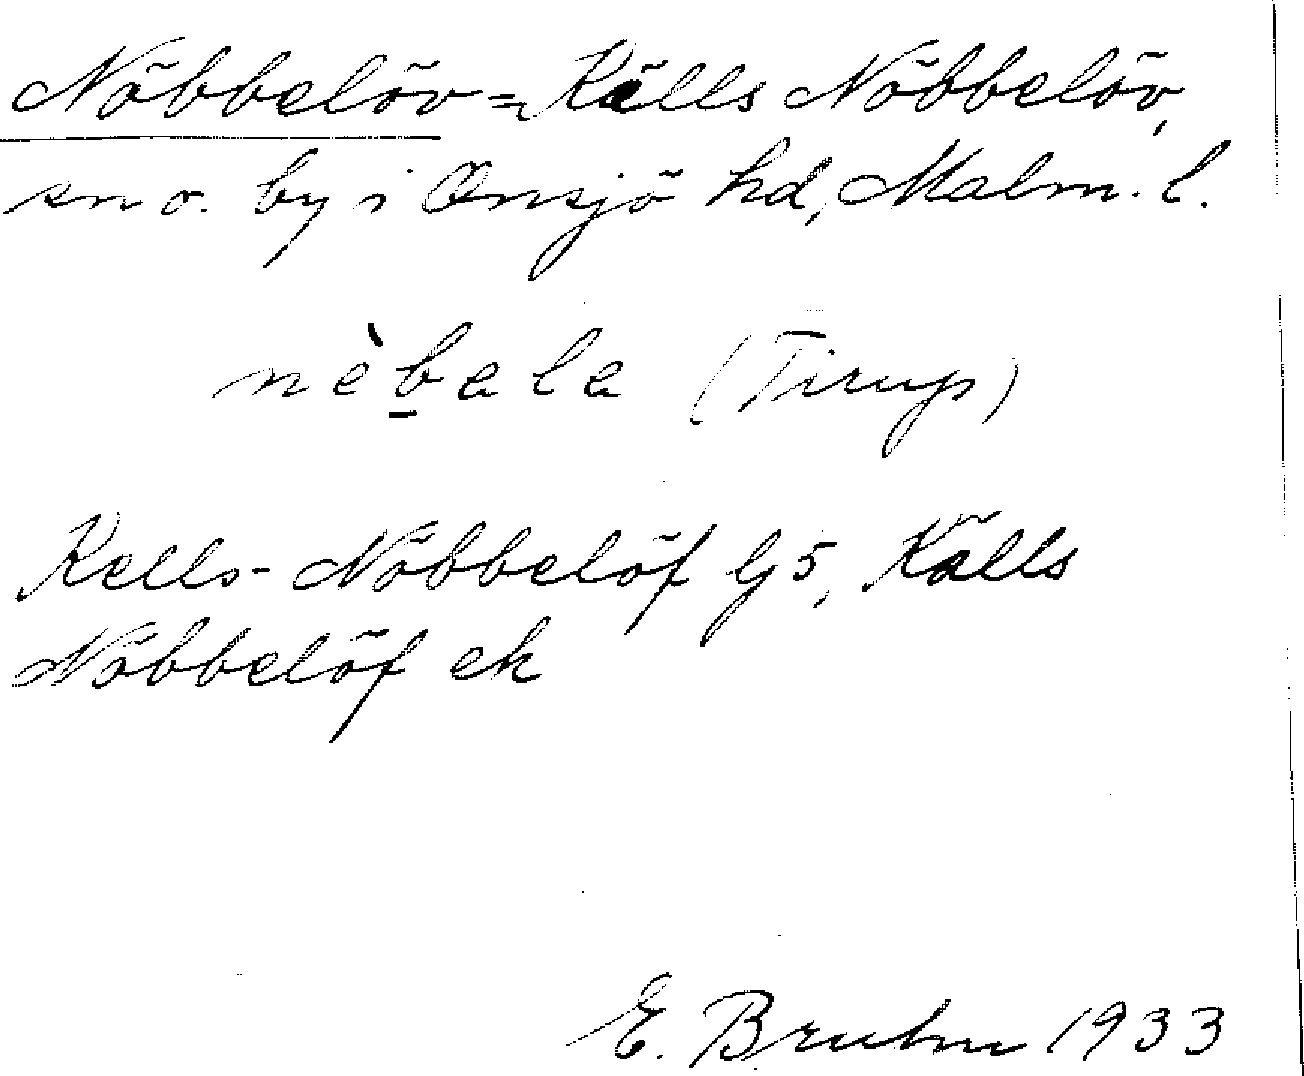 Nöbbelöv = Källs Nöbbelöv,
sn o. by i Onsjö hd, Malm. l.
nèb̲ala (Tirup)
Kells-Nöbbelöf Gj5, Källs
Nöbbelöf ek
E. Bruhn 1933